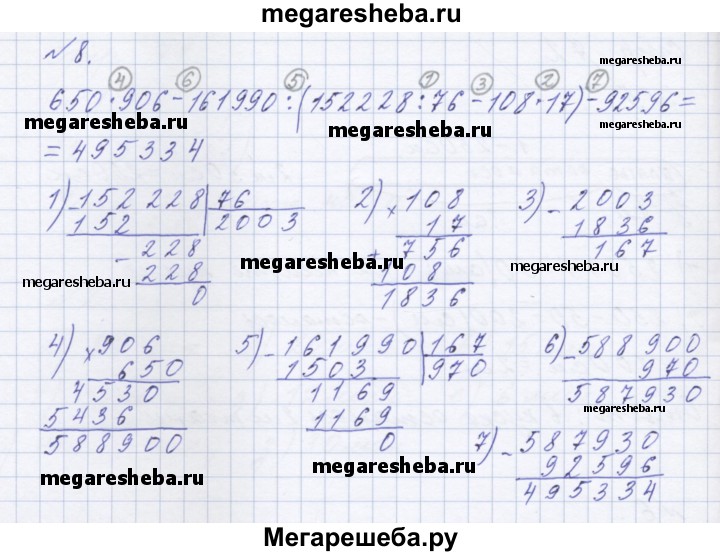 megaresheba.ru
№8.
megaresheba.ru
4 6 5 1 3 2 7
650·906-161990:(152228:76-108·17)-92596=
megaresheba.ru megaresheba.ru megaresheba.ru
=495334
1) -152228 | 76
152 2003
-228
228
0
2) ×108
17
+756
108
1836
3) -2003
1836
167
megaresheba.ru megaresheba.ru megaresheba.ru
4) ×906
650
4530
5436
588900
5) -161990 | 167
1503 970
1169
1169
0
6) -588900
970
587930
megaresheba.ru
7) -587930
92596
495334
megaresheba.ru megaresheba.ru megaresheba.ru
Мегарешеба.ру